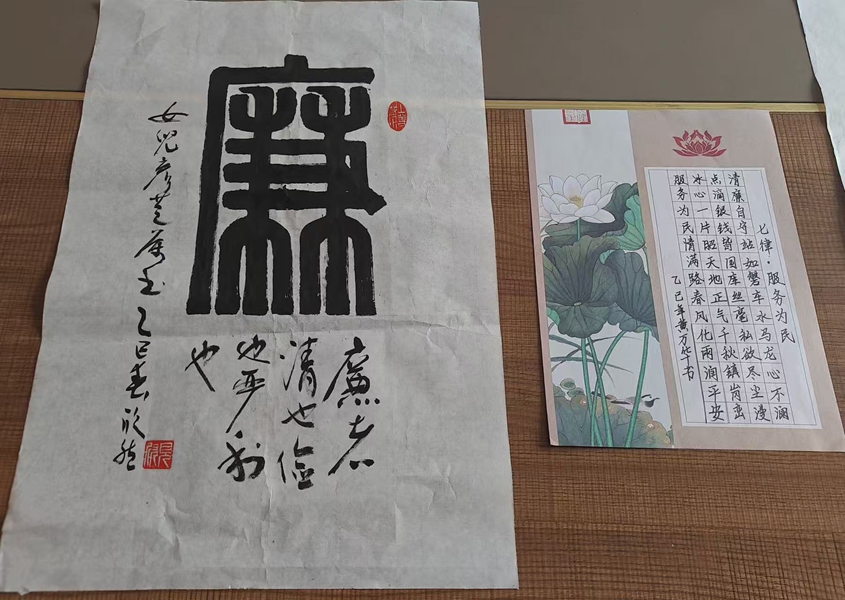 廉
廉者
清也俭
也严利
也
乙巳春欣然
七律·服务为民
清廉自守站如磐车水马龙心不澜
点滴银钱皆国库丝毫私欲尽尘漫
冰心一片昭天地正气千秋镇岗峦
服务为民情满路春风化雨润平安
乙巳年黄万华书